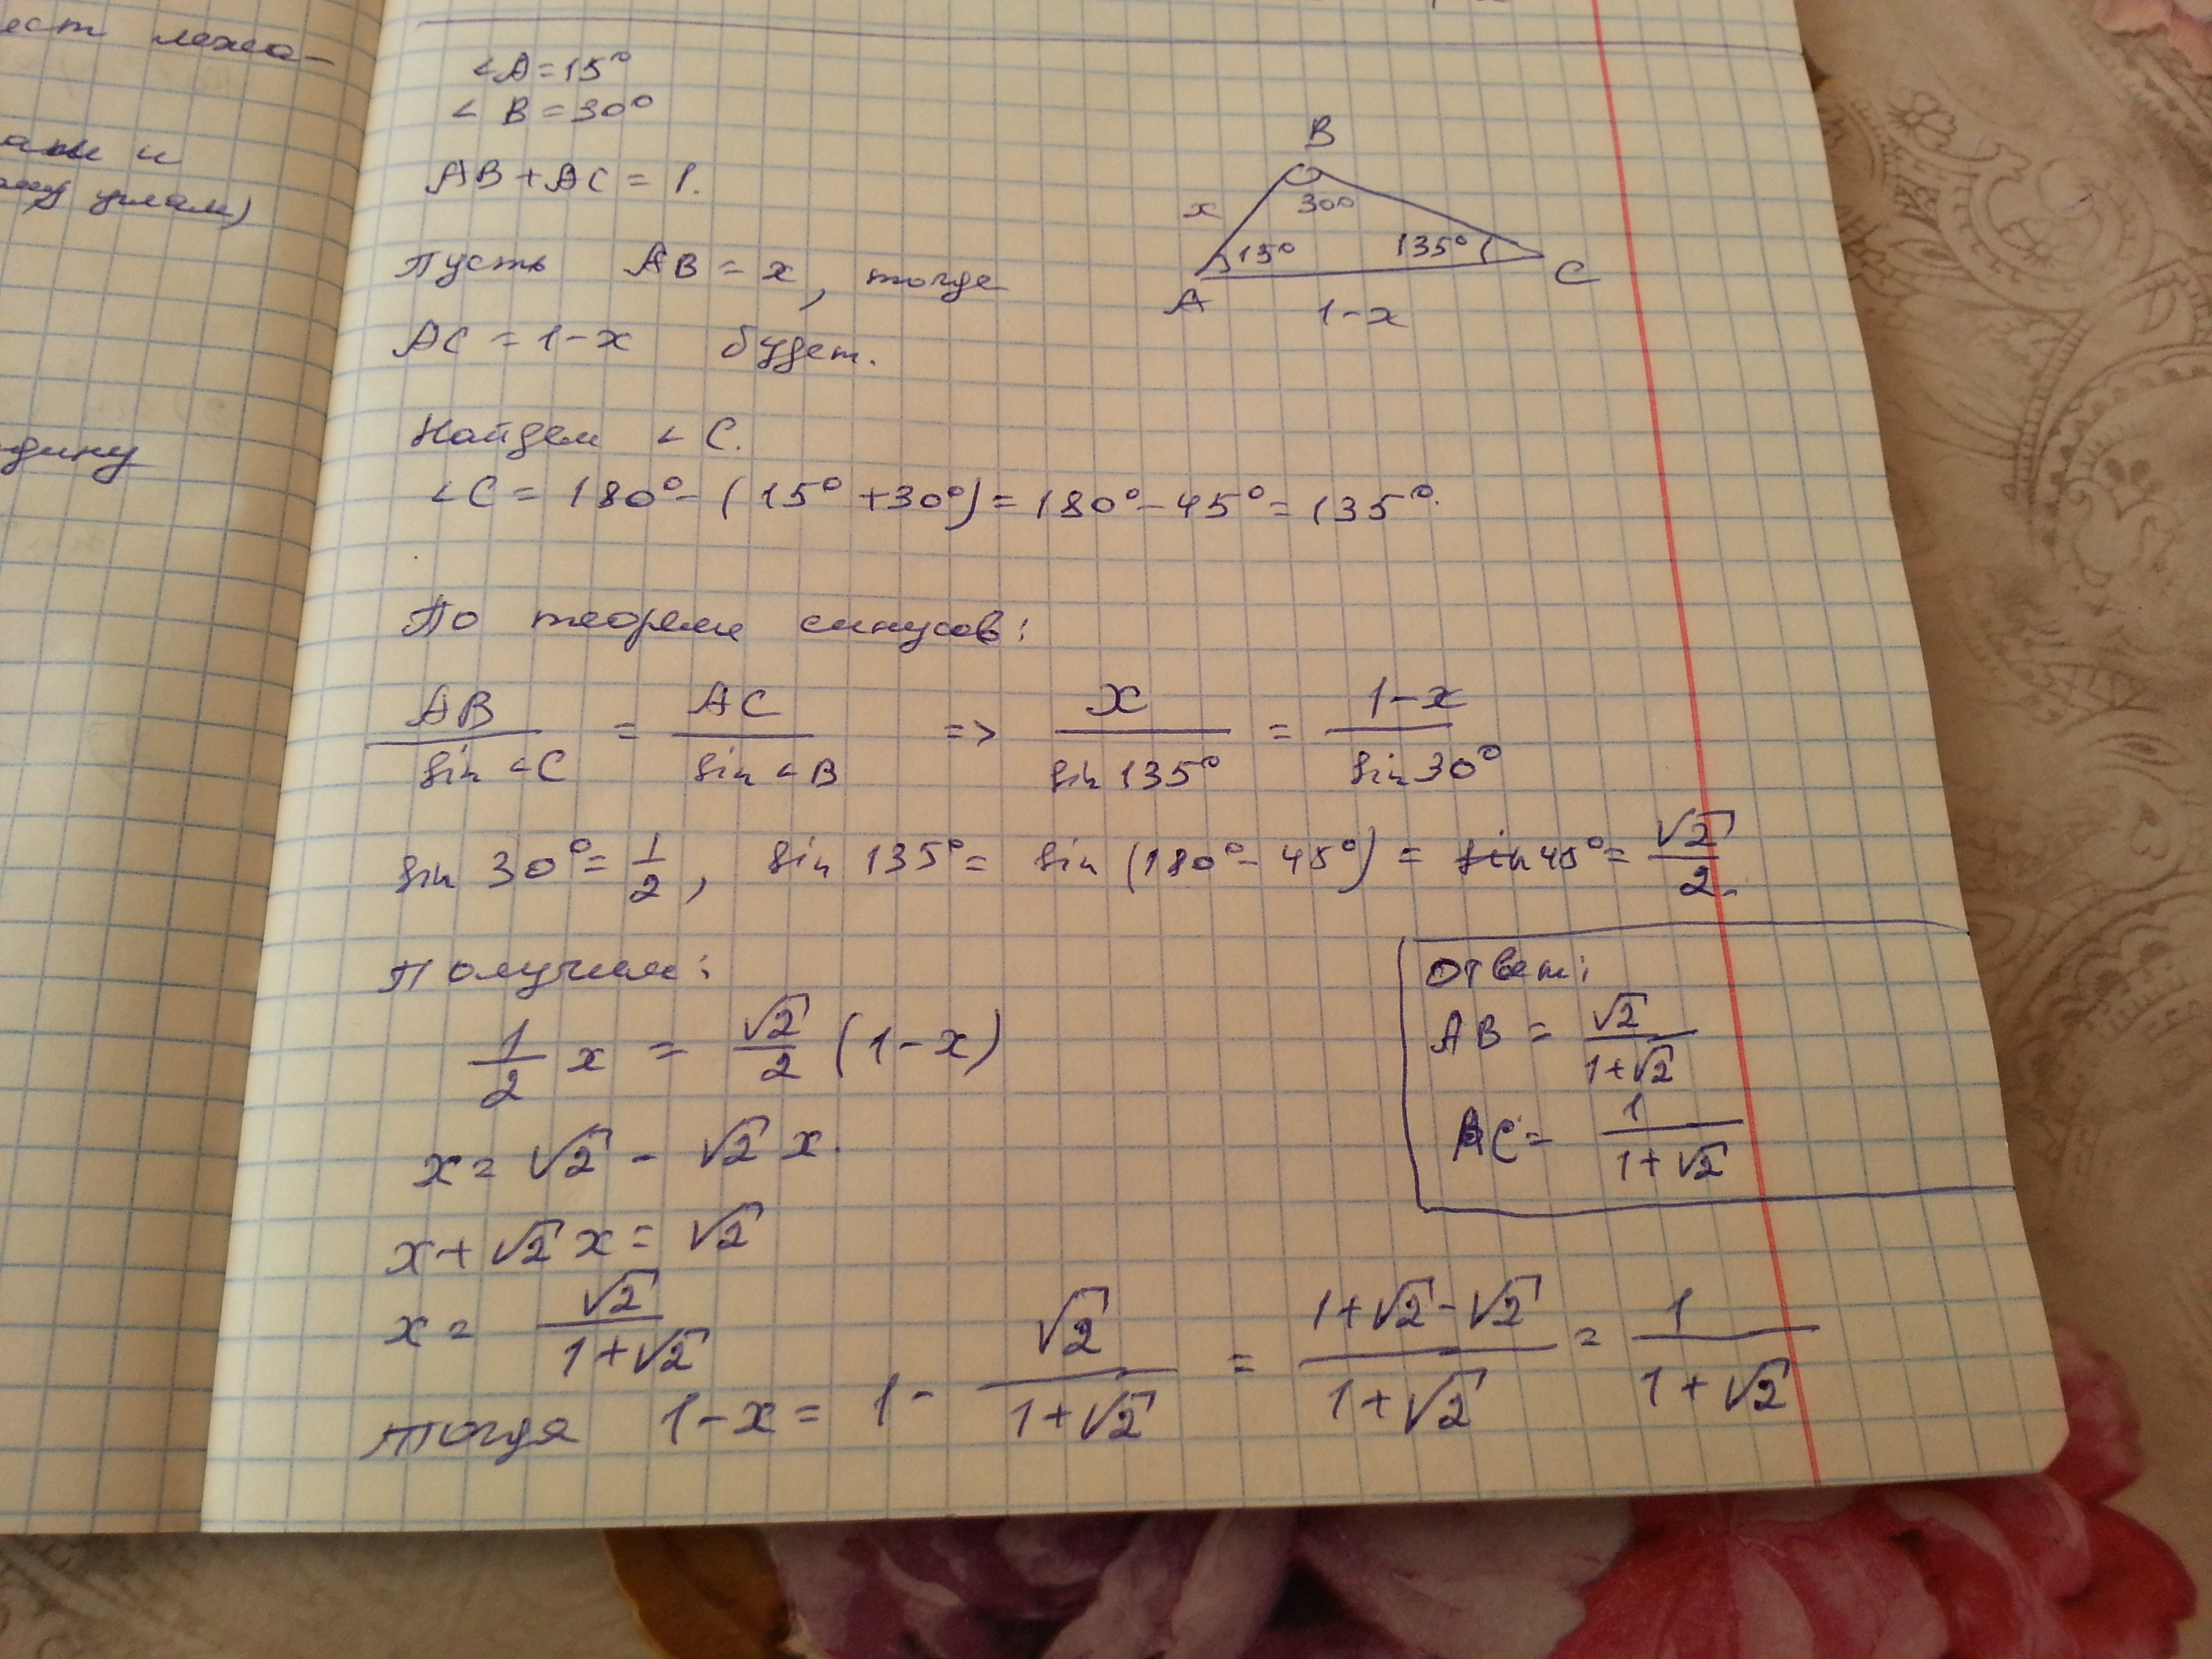 ест лежа-
и
углам)
∠A=15°
∠B=30°
AB+AC=1.
Пусть AB=x, тогда
AC=1-x будет.
B
x
30°
15°
135°
A
C
1-x
Найдем ∠C.
∠C=180°-(15°+30°)=180°-45°=135°.
По теореме синусов:
AB/sin∠C = AC/sin∠B => x/sin135° = 1-x/sin30°
sin 30°=1/2, sin 135°= sin(180°-45°)= sin45°=√2/2.
Получим:
1/2 x = √2/2 (1-x)
x=√2-√2 x.
x+√2 x=√2
x= √2/1+√2
тогда 1-x= 1- √2/1+√2 = 1+√2-√2/1+√2 = 1/1+√2
Ответ:
AB = √2/1+√2
AC= 1/1+√2